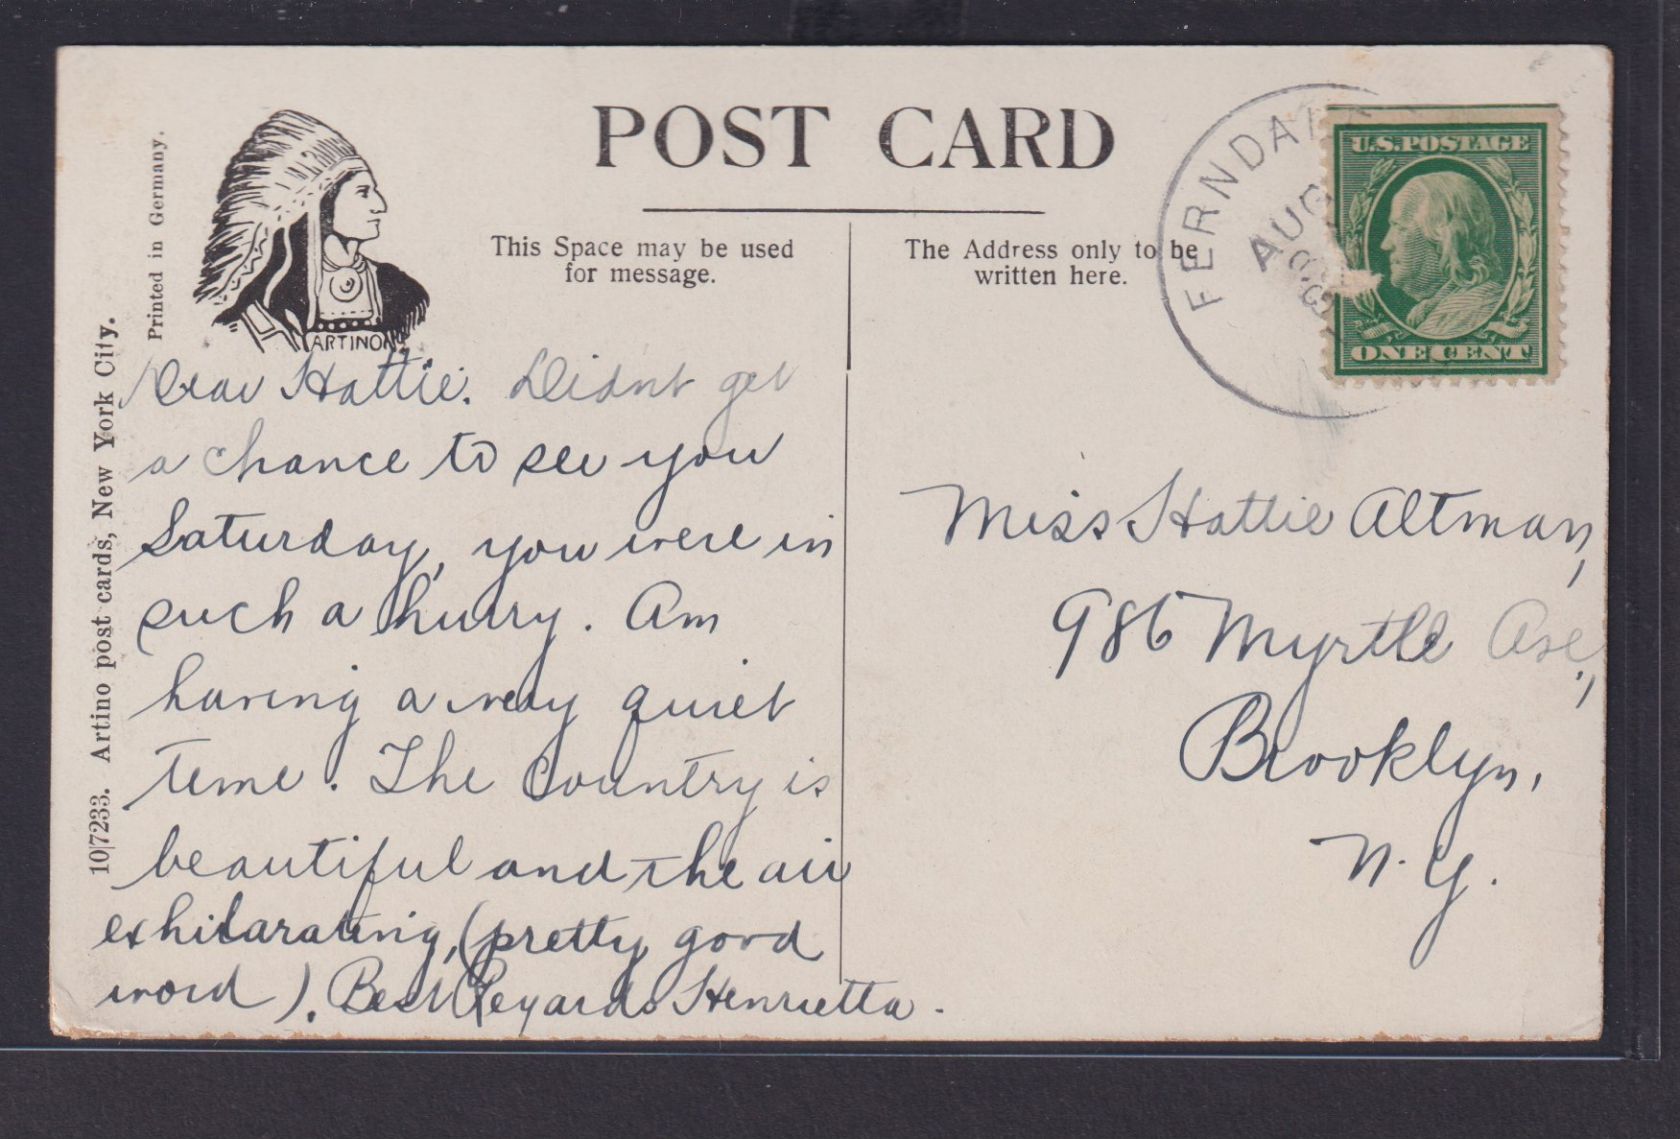 POST CARD
This Space may be used
for message.
The Address only to be
written here.
Printed in Germany.
10|7233. Artino post cards, New York City.
ARTINO
FERNDALE
AUG
U.S. POSTAGE
ONE CENT
Dear Hattie. Didnt get
a chance to see you
Saturday, you were in
such a hurry. Am
having a very quiet
time. The Country is
beautiful and the air
exhilarating, (pretty good
word). Best Regards Henrietta.
Miss Hattie Altman,
986 Myrtle Ave.,
Brooklyn,
N.Y.